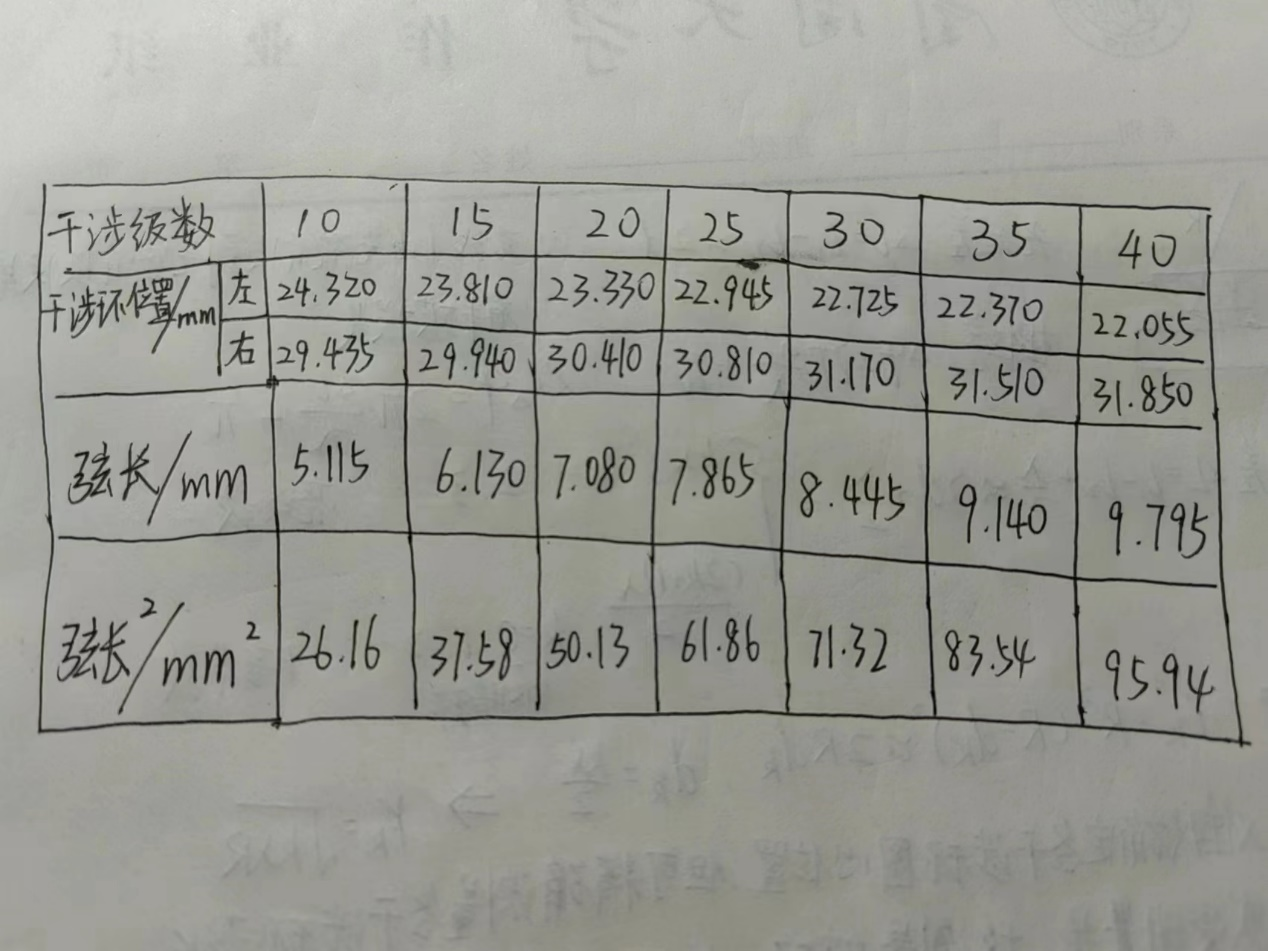 干涉级数 10 15 20 25 30 35 40
干涉环位置/mm 左 24.320 23.810 23.330 22.945 22.725 22.370 22.055
右 29.435 29.940 30.410 30.810 31.170 31.510 31.850
弦长/mm 5.115 6.130 7.080 7.865 8.445 9.140 9.795
弦长²/mm² 26.16 37.58 50.13 61.86 71.32 83.54 95.94